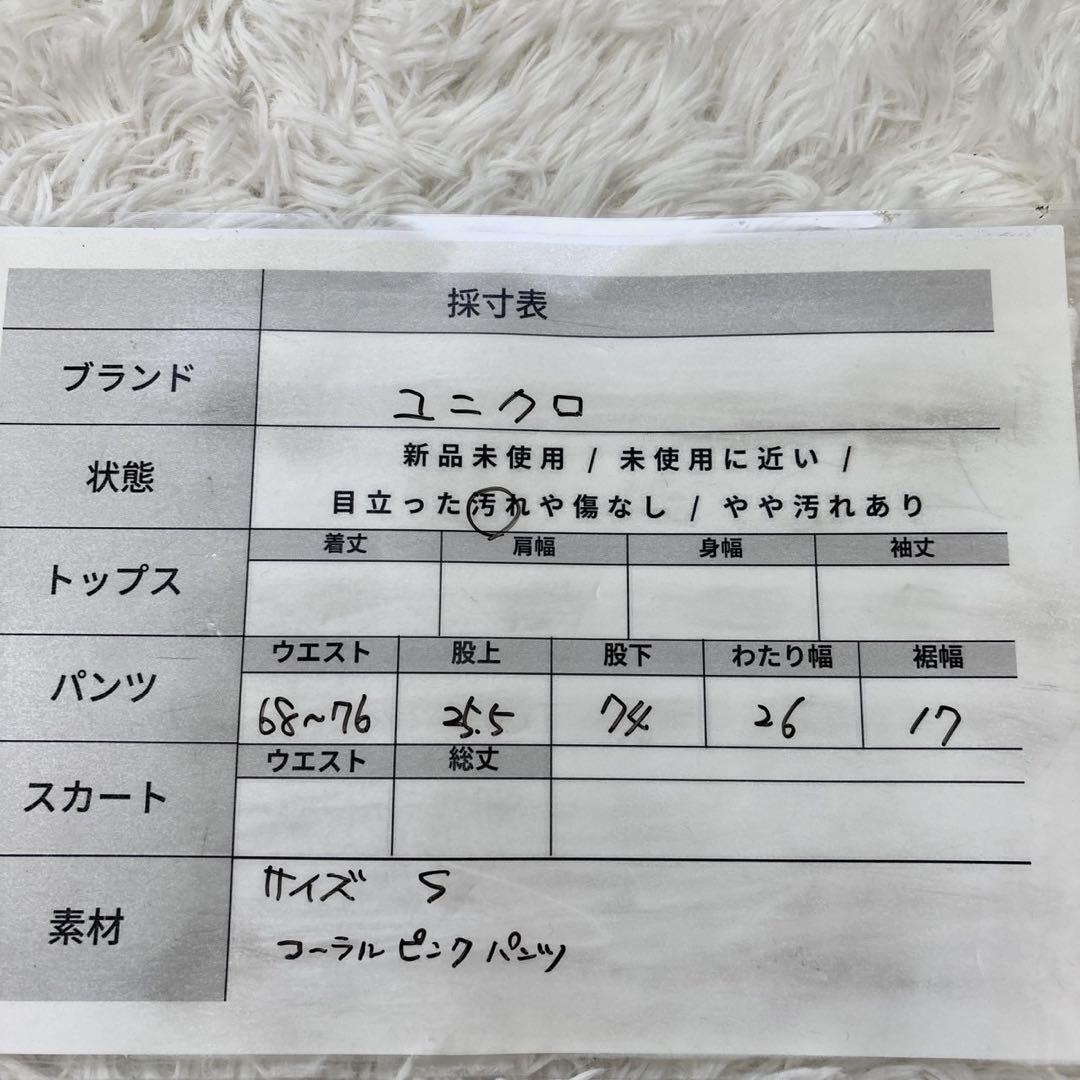 採寸表
ブランド
ユニクロ
状態
新品未使用 / 未使用に近い /
目立った汚れや傷なし / やや汚れあり
トップス
着丈 肩幅 身幅 袖丈
パンツ
ウエスト 股上 股下 わたり幅 裾幅
68~76 25.5 74 26 17
スカート
ウエスト 総丈
素材
サイズ S
コーラルピンクパンツ